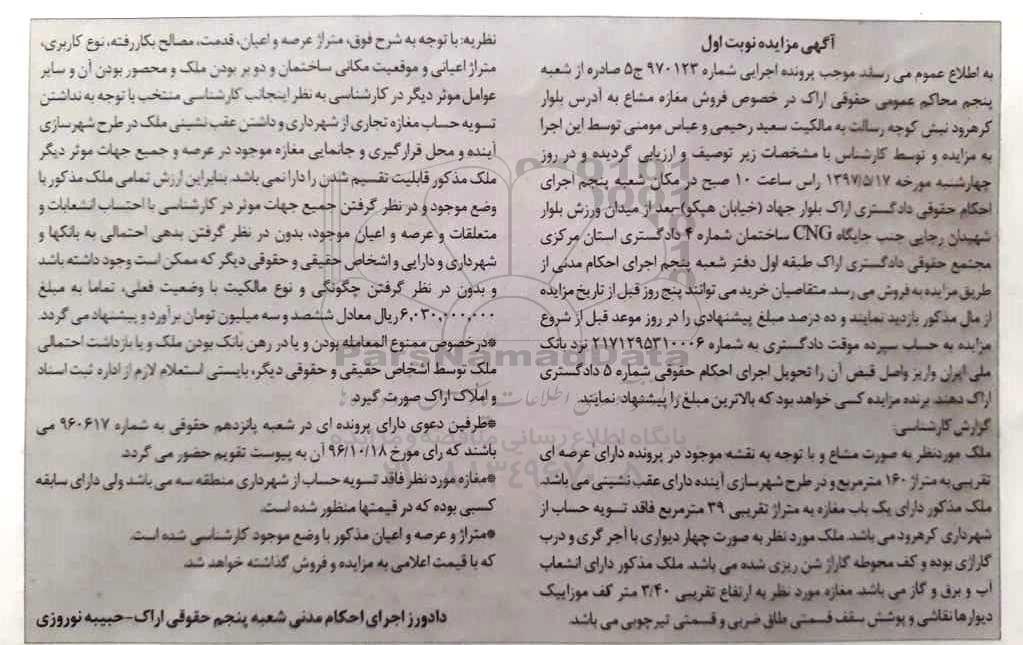 آگهی مزایده نوبت اول
به اطلاع عموم می رساند موجب پرونده اجرایی شماره ۹۷۰۱۲۳ ج۵ صادره از شعبه
پنجم محاکم عمومی حقوقی اراک در خصوص فروش مغازه مشاع به آدرس بلوار
کرهرود نبش کوچه رسالت به مالکیت سعید رحیمی و عباس مومنی توسط این اجرا
به مزایده و توسط کارشناس با مشخصات زیر توصیف و ارزیابی گردیده و در روز
چهارشنبه مورخه ۱۳۹۷/۵/۱۷ راس ساعت ۱۰ صبح در مکان شعبه پنجم اجرای
احکام حقوقی دادگستری اراک بلوار جهاد (خیابان هپکو)-بعد از میدان ورزش بلوار
شهیدان رجایی جنب جایگاه CNG ساختمان شماره ۴ دادگستری استان مرکزی
مجتمع حقوقی دادگستری اراک طبقه اول دفتر شعبه پنجم اجرای احکام مدنی از
طریق مزایده به فروش می رسد. متقاضیان خرید می توانند پنج روز قبل از تاریخ مزایده
از مال مذکور بازدید نمایند و ده درصد مبلغ پیشنهادی را در روز موعد قبل از شروع
مزایده به حساب سپرده موقت دادگستری به شماره ۲۱۷۱۲۹۵۳۱۰۰۰۶ نزد بانک
ملی ایران واریز واصل قبض آن را تحویل اجرای احکام حقوقی شماره ۵ دادگستری
اراک دهند. برنده مزایده کسی خواهد بود که بالاترین مبلغ را پیشنهاد نمایند.
گزارش کارشناسی:
ملک موردنظر به صورت مشاع و با توجه به نقشه موجود در پرونده دارای عرصه ای
تقریبی به متراژ ۱۶۰ مترمربع و در طرح شهرسازی آینده دارای عقب نشینی می باشد.
ملک مذکور دارای یک باب مغازه به متراژ تقریبی ۳۹ مترمربع فاقد تسویه حساب از
شهرداری کرهرود می باشد. ملک مورد نظر به صورت چهار دیواری با آجر گری و درب
گاراژی بوده و کف محوطه گاراژ شن ریزی شده می باشد. ملک مذکور دارای انشعاب
آب و برق و گاز می باشد. مغازه مورد نظر به ارتفاع تقریبی ۳/۴۰ متر کف موزاییک
دیوارها نقاشی و پوشش سقف قسمتی طاق ضربی و قسمتی تیرچوبی می باشد.
نظریه: با توجه به شرح فوق، متراژ عرصه و اعیان، قدمت، مصالح بکاررفته، نوع کاربری،
متراژ اعیانی و موقعیت مکانی ساختمان و دو بر بودن ملک و محصور بودن آن و سایر
عوامل موثر دیگر در کارشناسی به نظر اینجانب کارشناسی منتخب با توجه به نداشتن
تسویه حساب مغازه تجاری از شهرداری و داشتن عقب نشینی ملک در طرح شهرسازی
آینده و محل قرارگیری و جانمایی مغازه موجود در عرصه و جمیع جهات موثر دیگر
ملک مذکور قابلیت تقسیم شدن را دارا نمی باشد. بنابراین ارزش تمامی ملک مذکور با
وضع موجود و در نظر گرفتن جمیع جهات موثر در کارشناسی با احتساب انشعابات و
متعلقات و عرصه و اعیان موجود، بدون در نظر گرفتن بدهی احتمالی به بانکها و
شهرداری و دارایی و اشخاص حقیقی و حقوقی دیگر که ممکن است وجود داشته باشد
و بدون در نظر گرفتن چگونگی و نوع مالکیت با وضعیت فعلی، تماما به مبلغ
۶,۰۳۰,۰۰۰,۰۰۰ ریال معادل ششصد و سه میلیون تومان برآورد و پیشنهاد می گردد.
*درخصوص ممنوع المعامله بودن و یا در رهن بانک بودن ملک و یا بازداشت احتمالی
ملک توسط اشخاص حقیقی و حقوقی دیگر، بایستی استعلام لازم از اداره ثبت اسناد
و املاک اراک صورت گیرد.
*طرفین دعوی دارای پرونده ای در شعبه پانزدهم حقوقی به شماره ۹۶۰۶۱۷ می
باشند که رای مورخ ۹۶/۱۰/۱۸ آن به پیوست تقویم حضور می گردد.
*مغازه مورد نظر فاقد تسویه حساب از شهرداری منطقه سه می باشد ولی دارای سابقه
کسبی بوده که در قیمتها منظور شده است.
*متراژ و عرصه و اعیان مذکور با وضع موجود کارشناسی شده است.
که با قیمت اعلامی به مزایده و فروش گذاشته خواهد شد.
دادورز اجرای احکام مدنی شعبه پنجم حقوقی اراک-حبیبه نوروزی
ParsNamadData
پایگاه اطلاع رسانی مناقصه و مزایده